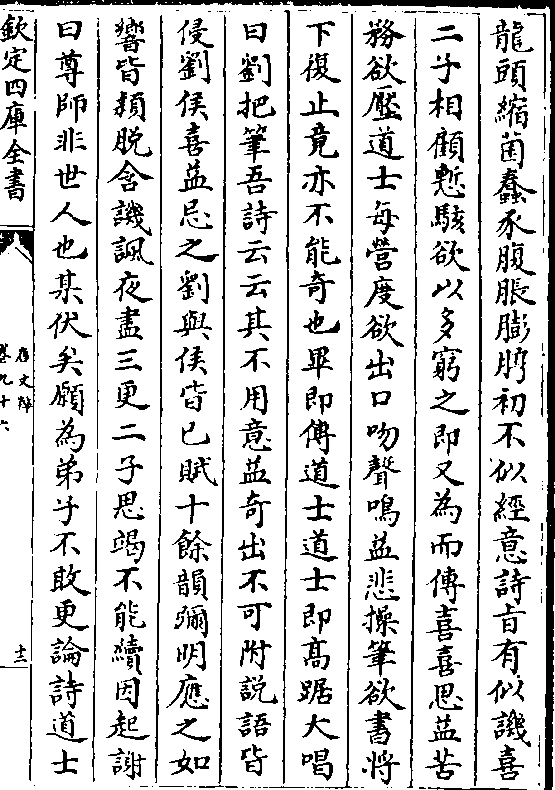 龍頭縮菌蠢豕腹脹膨脝初不似經意詩㫖有似譏喜
二子相顧慙駭欲以多窮之即又為而傳喜喜思益苦
務欲壓道士每營度欲出口吻聲鳴益悲操筆欲書將
下復止竟亦不能奇也畢即傳道士道士即髙踞大唱
曰劉把筆吾詩云云其不用意益奇出不可附説語皆
侵劉侯喜益忌之劉與侯皆已賦十餘韻彌明應之如
響皆頴脱含譏諷夜盡三更二子思竭不能續因起謝
曰尊師非世人也某伏矣願為弟子不敢更論詩道士
欽定四庫全書
卷九十六
十三